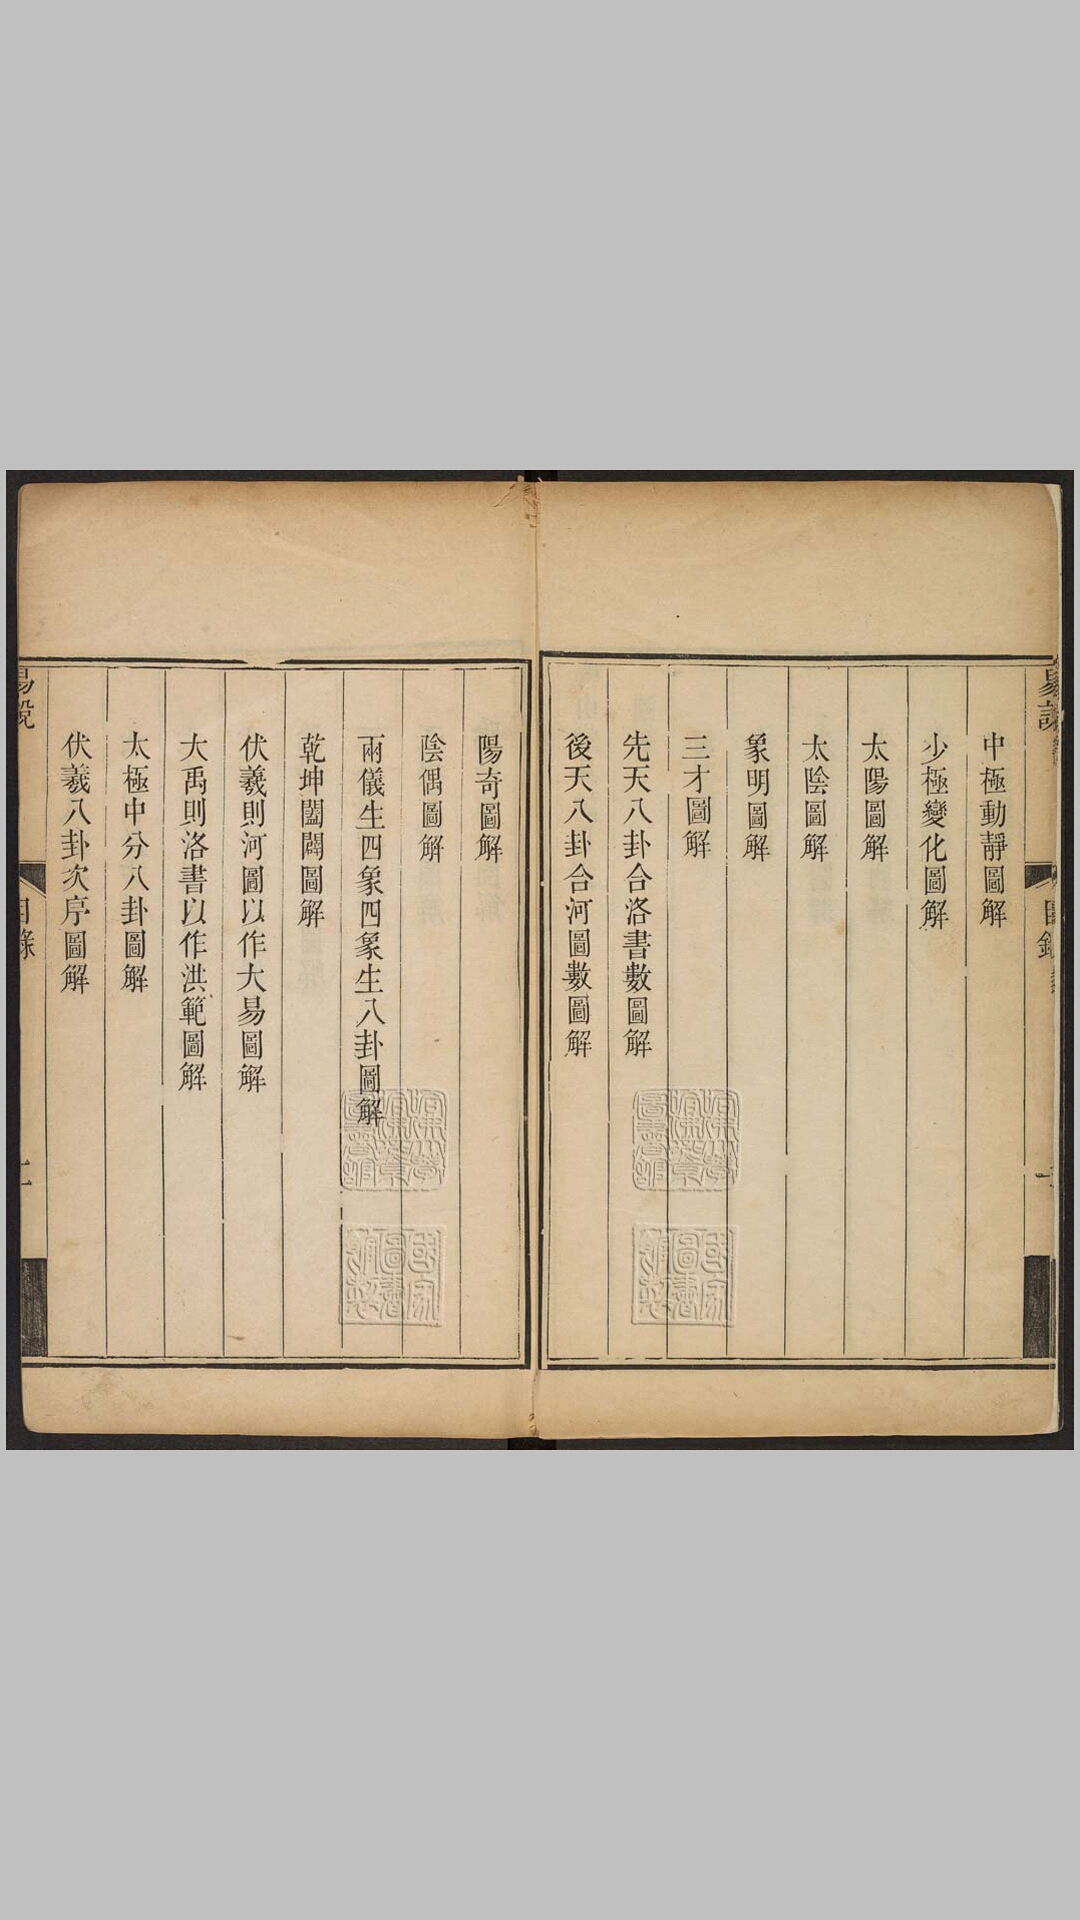 易說
目錄
一
中極動靜圖解
少極變化圖解
太陽圖解
太陰圖解
象明圖解
三才圖解
先天八卦合洛書數圖解
後天八卦合河圖數圖解
陽奇圖解
陰偶圖解
兩儀生四象四象生八卦圖解
乾坤闔闢圖解
伏羲則河圖以作大易圖解
大禹則洛書以作洪範圖解
太極中分八卦圖解
伏羲八卦次序圖解
易說
目錄
二
漢學
濼菴
國家
圖書
館藏